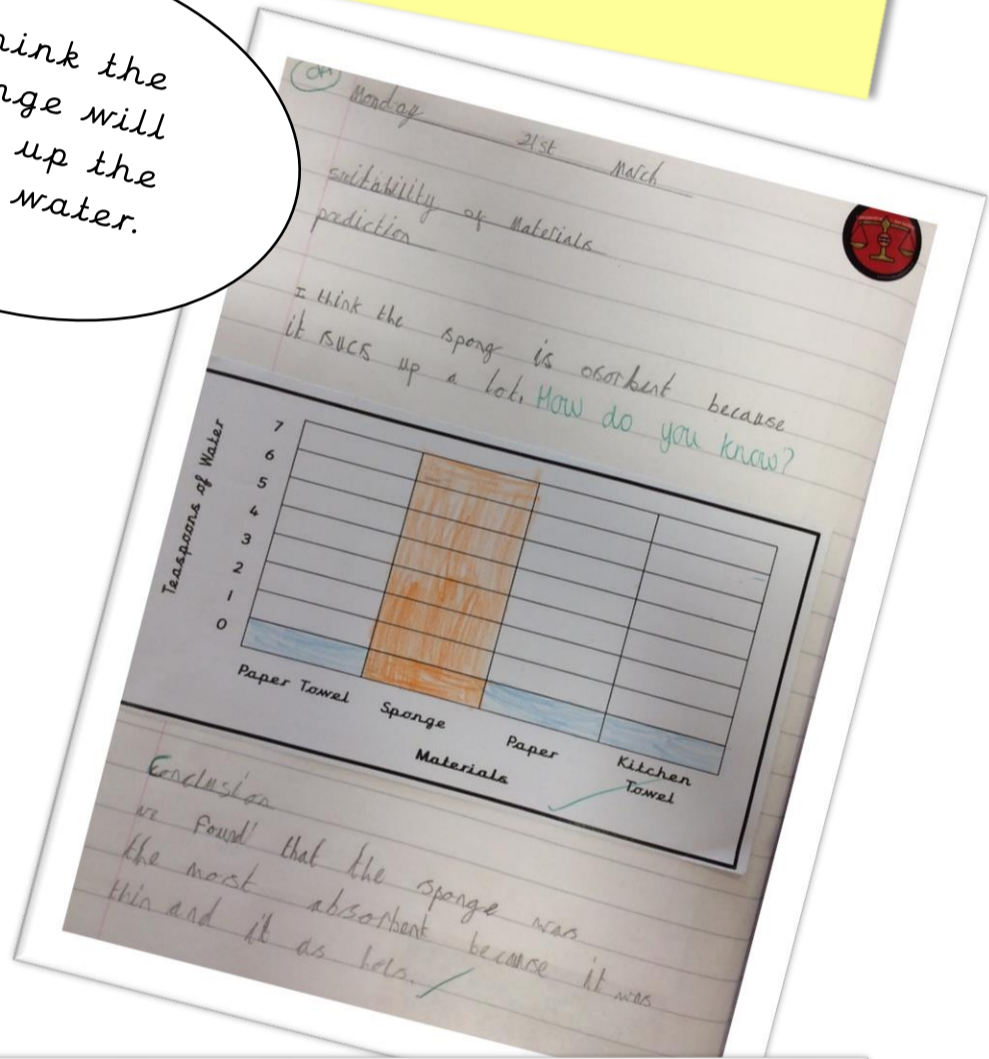 hink the
nge will
up the
water.
OA
Monday 21st March
suitability of Materials
prediction
I think the spong is osorbent because
it sucs up a lot. How do you know?
Teaspoons of Water
7
6
5
4
3
2
1
0
Paper Towel
Sponge
Paper
Kitchen
Towel
Materials
Conclusion
we found that the sponge was
the most absorbent because it was
thin and it as hols.